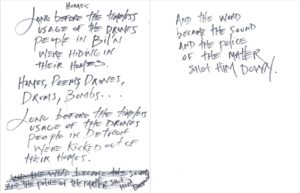 Homes
Long before the timeless
usage of the drones
people in Bil'in
were hiding in
their homes.
Homes, Poems Drones,
Drums, Bombs...
Long before the timeless
usage of the drones
people in Detroit
were kicked out of
their homes.
And the word became the sound
and the police of the matter shot him down
And the word
became the sound
and the police
of the matter
shot him down.